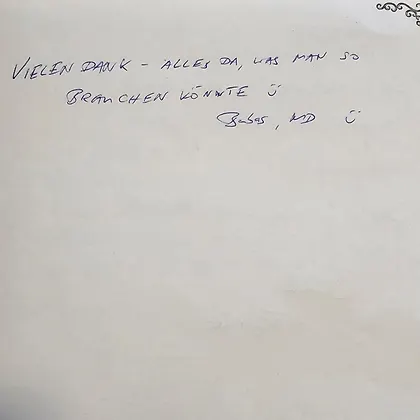 VIELEN DANK – ALLES DA, WAS MAN SO
BRAUCHEN KÖNNTE ü
MD ü